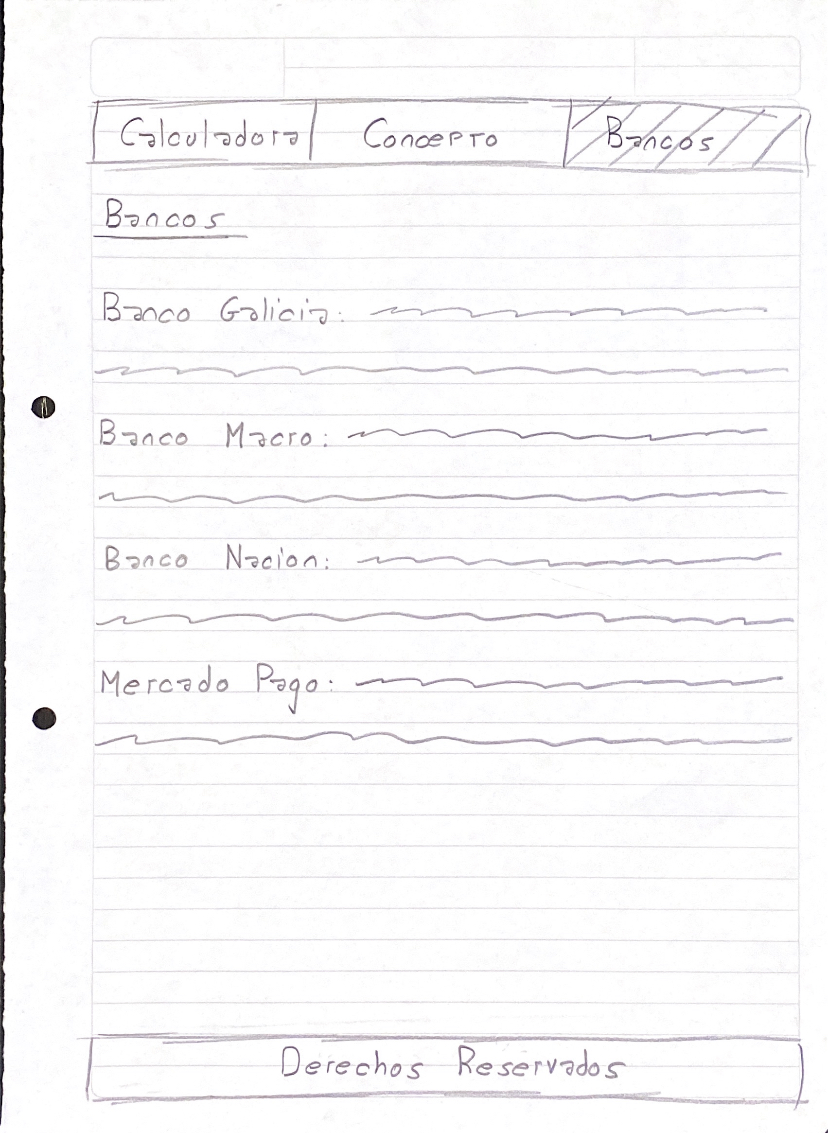 Calculadora Concepto Bancos
Bancos
Banco Galicia:
Banco Macro:
Banco Nacion:
Mercado Pago:
Derechos Reservados